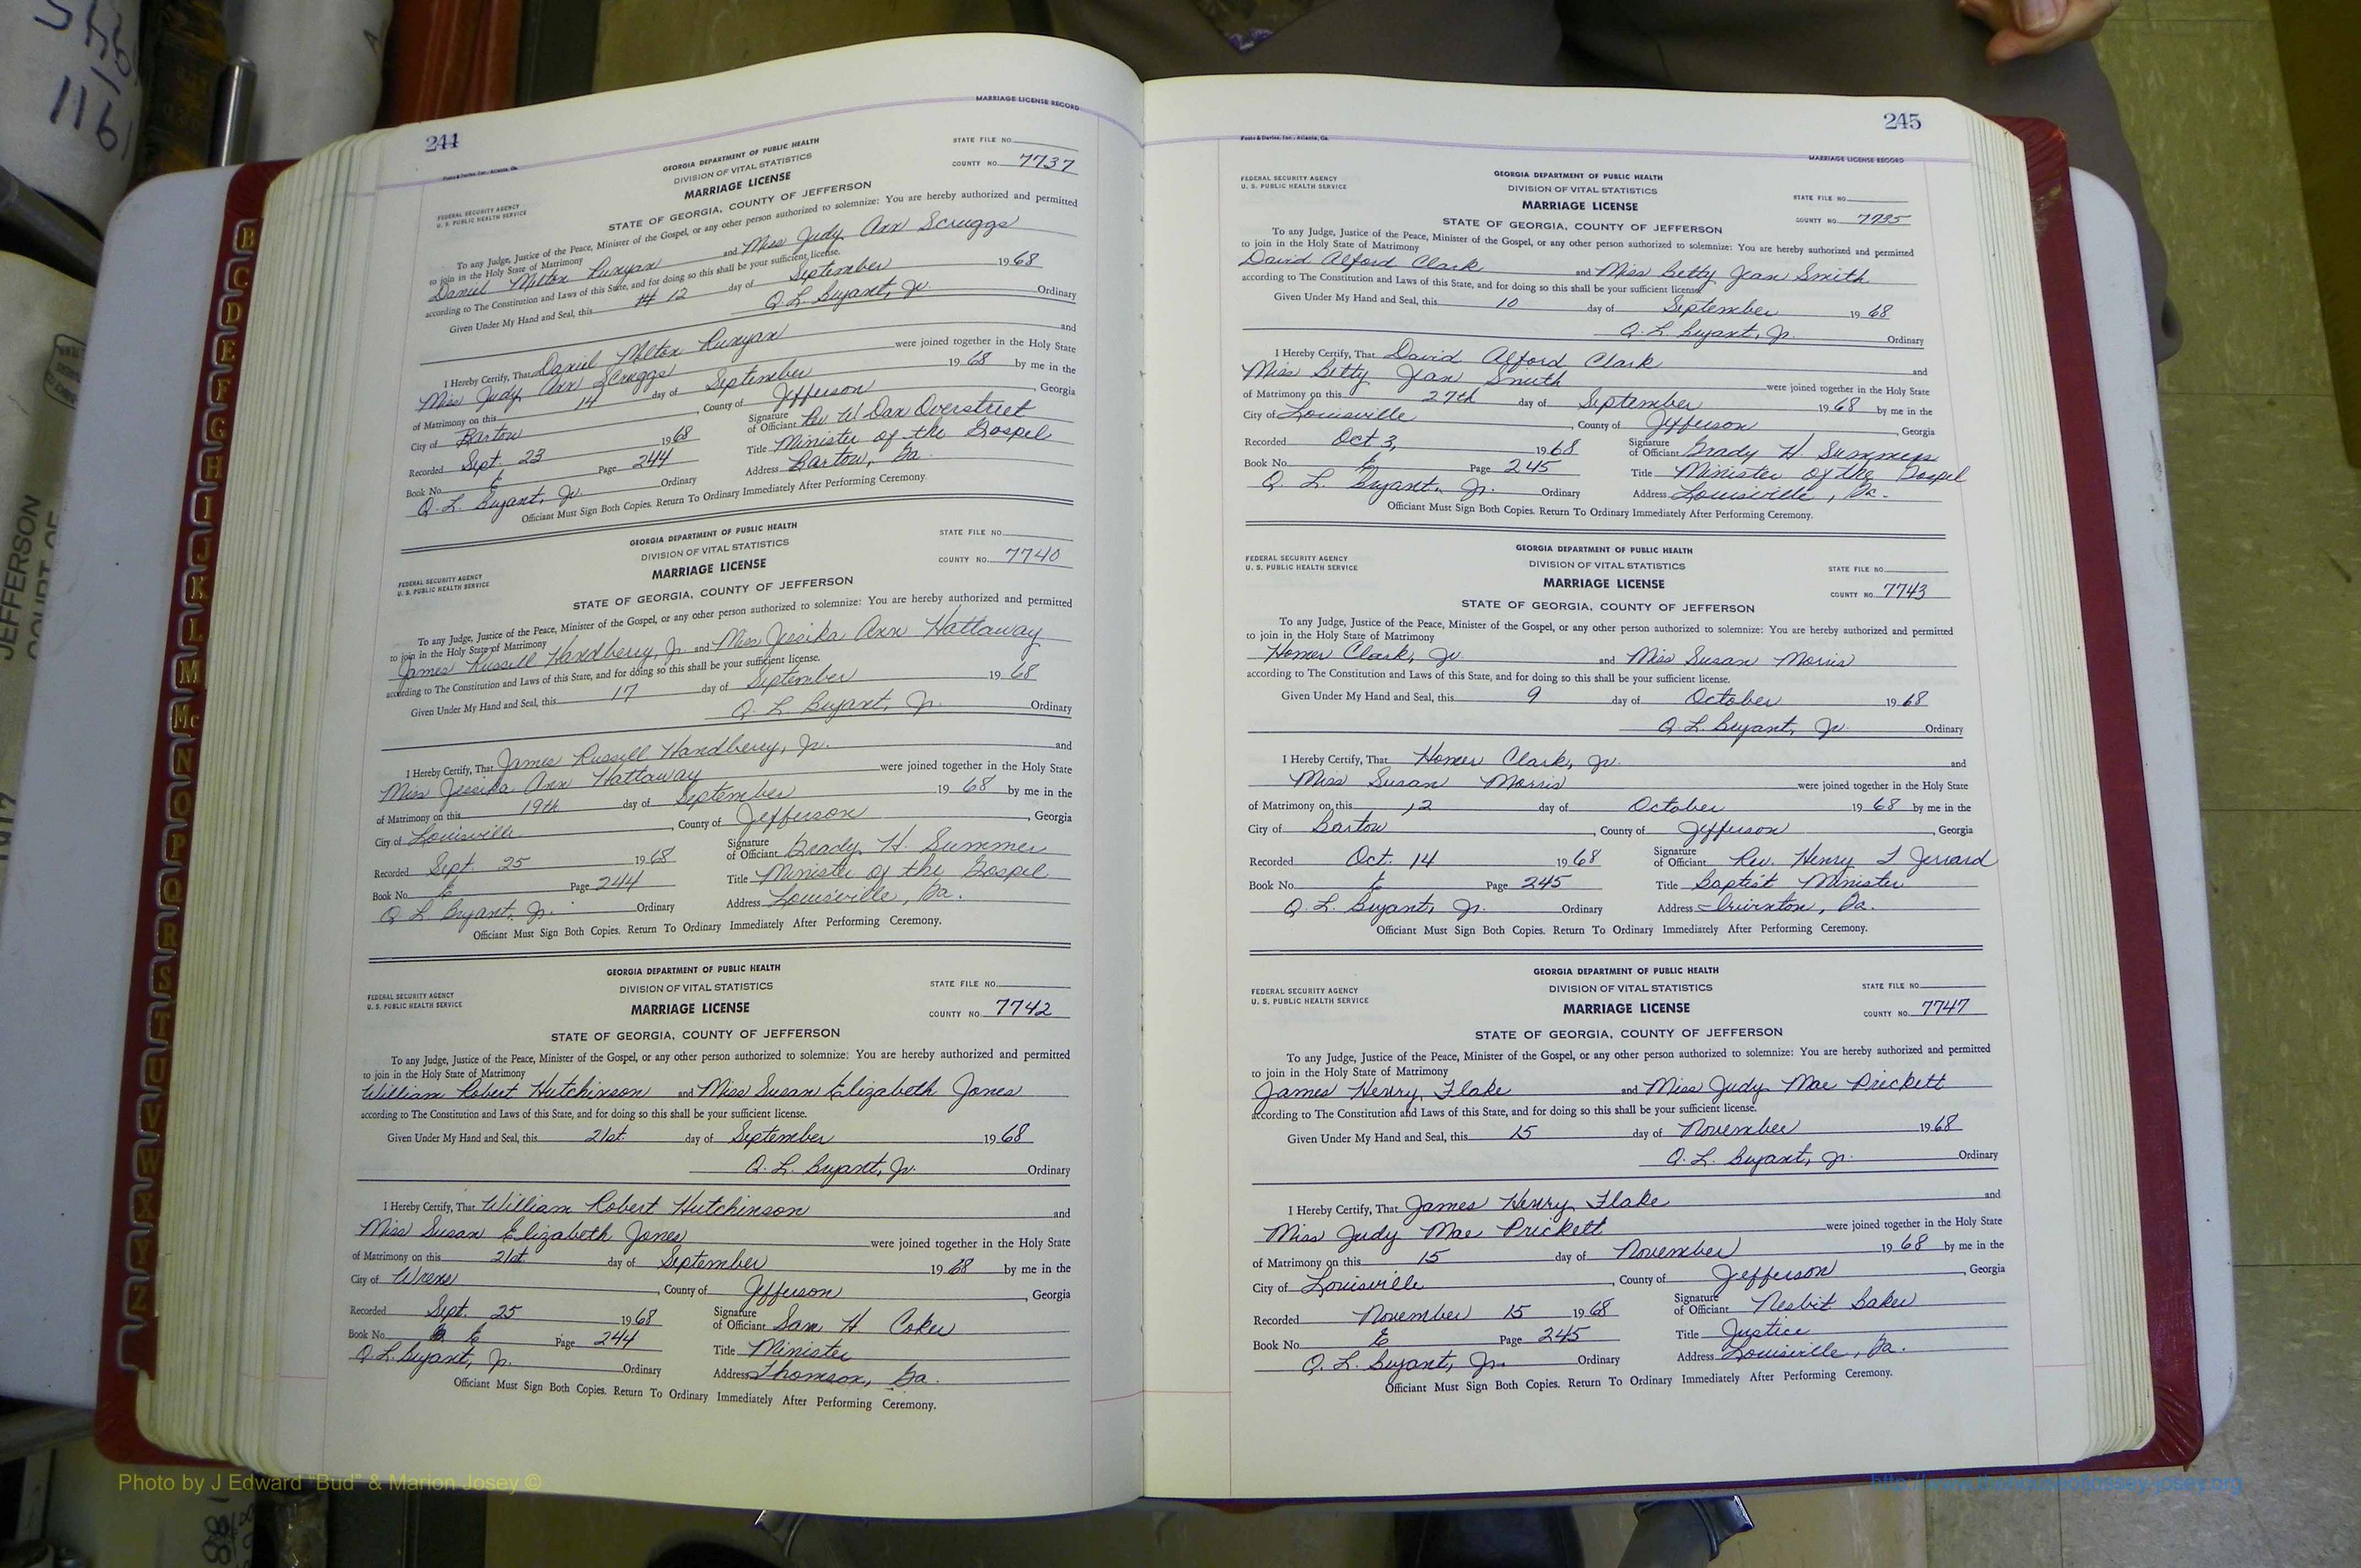 244
MARRIAGE LICENSE RECORD
Foote & Davies, Inc., Atlanta, Ga.
GEORGIA DEPARTMENT OF PUBLIC HEALTH
STATE FILE NO.
DIVISION OF VITAL STATISTICS
COUNTY NO. 7737
FEDERAL SECURITY AGENCY
U. S. PUBLIC HEALTH SERVICE
MARRIAGE LICENSE
STATE OF GEORGIA, COUNTY OF JEFFERSON
To any Judge, Justice of the Peace, Minister of the Gospel, or any other person authorized to solemnize: You are hereby authorized and permitted
to join in the Holy State of Matrimony
Daniel Milton Runyan and Miss Judy Ann Scruggs
according to The Constitution and Laws of this State, and for doing so this shall be your sufficient license.
Given Under My Hand and Seal, this 12 day of September 1968
Q. L. Bryant, Jr. Ordinary
I Hereby Certify, That Daniel Milton Runyan and
Miss Judy Ann Scruggs were joined together in the Holy State
of Matrimony on this 14 day of September 1968 by me in the
City of Bartow, County of Jefferson, Georgia
Recorded Sept. 23 1968 Signature of Officiant Rev W Dan Overstreet
Book No. E Page 244 Title Minister of the Gospel
Q. L. Bryant, Jr. Ordinary Address Bartow, Ga.
Officiant Must Sign Both Copies. Return To Ordinary Immediately After Performing Ceremony.
GEORGIA DEPARTMENT OF PUBLIC HEALTH
STATE FILE NO.
DIVISION OF VITAL STATISTICS
COUNTY NO. 7740
FEDERAL SECURITY AGENCY
U. S. PUBLIC HEALTH SERVICE
MARRIAGE LICENSE
STATE OF GEORGIA, COUNTY OF JEFFERSON
To any Judge, Justice of the Peace, Minister of the Gospel, or any other person authorized to solemnize: You are hereby authorized and permitted
to join in the Holy State of Matrimony
James Russell Handberry, Jr. and Miss Jesika Ann Hattaway
according to The Constitution and Laws of this State, and for doing so this shall be your sufficient license.
Given Under My Hand and Seal, this 17 day of September 1968
Q. L. Bryant, Jr. Ordinary
I Hereby Certify, That James Russell Handberry, Jr. and
Miss Jesika Ann Hattaway were joined together in the Holy State
of Matrimony on this 19th day of September 1968 by me in the
City of Louisville, County of Jefferson, Georgia
Recorded Sept. 25 1968 Signature of Officiant Grady H. Summer
Book No. E Page 244 Title Minister of the Gospel
Q L Bryant, Jr. Ordinary Address Louisville, Ga.
Officiant Must Sign Both Copies. Return To Ordinary Immediately After Performing Ceremony.
GEORGIA DEPARTMENT OF PUBLIC HEALTH
STATE FILE NO.
DIVISION OF VITAL STATISTICS
FEDERAL SECURITY AGENCY
U. S. PUBLIC HEALTH SERVICE
MARRIAGE LICENSE
COUNTY NO. 7742
STATE OF GEORGIA, COUNTY OF JEFFERSON
To any Judge, Justice of the Peace, Minister of the Gospel, or any other person authorized to solemnize: You are hereby authorized and permitted
to join in the Holy State of Matrimony
William Robert Hutchinson and Miss Susan Elizabeth Jones
according to The Constitution and Laws of this State, and for doing so this shall be your sufficient license.
Given Under My Hand and Seal, this 21st. day of September 1968
Q. L. Bryant, Jr. Ordinary
I Hereby Certify, That William Robert Hutchinson and
Miss Susan Elizabeth Jones were joined together in the Holy State
of Matrimony on this 21st. day of September 1968 by me in the
City of Wrens, County of Jefferson, Georgia
Recorded Sept. 25 1968 Signature of Officiant Sam H. Coker
Book No. E Page 244 Title Minister
Q. L. Bryant, Jr. Ordinary Address Thomson, Ga.
Officiant Must Sign Both Copies. Return To Ordinary Immediately After Performing Ceremony.
245
Foote & Davies, Inc., Atlanta, Ga.
MARRIAGE LICENSE RECORD
FEDERAL SECURITY AGENCY
U. S. PUBLIC HEALTH SERVICE
GEORGIA DEPARTMENT OF PUBLIC HEALTH
DIVISION OF VITAL STATISTICS
STATE FILE NO.
MARRIAGE LICENSE
COUNTY NO. 7735
STATE OF GEORGIA, COUNTY OF JEFFERSON
To any Judge, Justice of the Peace, Minister of the Gospel, or any other person authorized to solemnize: You are hereby authorized and permitted
to join in the Holy State of Matrimony
David Alford Clark and Miss Betty Jean Smith
according to The Constitution and Laws of this State, and for doing so this shall be your sufficient license.
Given Under My Hand and Seal, this 10 day of September 1968
Q. L. Bryant, Jr. Ordinary
I Hereby Certify, That David Alford Clark and
Miss Betty Jean Smith were joined together in the Holy State
of Matrimony on this 27th day of September 1968 by me in the
City of Louisville, County of Jefferson, Georgia
Recorded Oct 3, 1968 Signature of Officiant Grady H Summers
Book No. E Page 245 Title Minister of the Gospel
Q. L. Bryant, Jr. Ordinary Address Louisville, Ga.
Officiant Must Sign Both Copies. Return To Ordinary Immediately After Performing Ceremony.
FEDERAL SECURITY AGENCY
U. S. PUBLIC HEALTH SERVICE
GEORGIA DEPARTMENT OF PUBLIC HEALTH
DIVISION OF VITAL STATISTICS
STATE FILE NO.
MARRIAGE LICENSE
COUNTY NO. 7743
STATE OF GEORGIA, COUNTY OF JEFFERSON
To any Judge, Justice of the Peace, Minister of the Gospel, or any other person authorized to solemnize: You are hereby authorized and permitted
to join in the Holy State of Matrimony
Homer Clark, Jr. and Miss Susan Morris
according to The Constitution and Laws of this State, and for doing so this shall be your sufficient license.
Given Under My Hand and Seal, this 9 day of October 1968
Q. L. Bryant, Jr. Ordinary
I Hereby Certify, That Homer Clark, Jr. and
Miss Susan Morris were joined together in the Holy State
of Matrimony on this 12 day of October 1968 by me in the
City of Bartow, County of Jefferson, Georgia
Recorded Oct. 14 1968 Signature of Officiant Rev. Henry
Book No. E Page 245 Title Baptist Minister
Q. L. Bryant, Jr. Ordinary Address Irwinton, Ga.
Officiant Must Sign Both Copies. Return To Ordinary Immediately After Performing Ceremony.
GEORGIA DEPARTMENT OF PUBLIC HEALTH
FEDERAL SECURITY AGENCY
U. S. PUBLIC HEALTH SERVICE
DIVISION OF VITAL STATISTICS
STATE FILE NO.
MARRIAGE LICENSE
COUNTY NO. 7747
STATE OF GEORGIA, COUNTY OF JEFFERSON
To any Judge, Justice of the Peace, Minister of the Gospel, or any other person authorized to solemnize: You are hereby authorized and permitted
to join in the Holy State of Matrimony
James Henry Flake and Miss Judy Mae Prickett
according to The Constitution and Laws of this State, and for doing so this shall be your sufficient license.
Given Under My Hand and Seal, this 15 day of November 1968
Q. L. Bryant, Jr. Ordinary
I Hereby Certify, That James Henry Flake and
Miss Judy Mae Prickett were joined together in the Holy State
of Matrimony on this 15 day of November 1968 by me in the
City of Louisville, County of Jefferson, Georgia
Recorded November 15 1968 Signature of Officiant Nesbit Baker
Book No. E Page 245 Title Justice
Q. L. Bryant, Jr. Ordinary Address Louisville, Ga.
Officiant Must Sign Both Copies. Return To Ordinary Immediately After Performing Ceremony.
B
C
D
E
F
G
H
I
J
K
L
M
Mc
N
O
P
Q
R
S
T
U
V
W
X
Y
Z
1161
JEFFERSON
COURT OF
Photo by J Edward "Bud" & Marion Josey ©